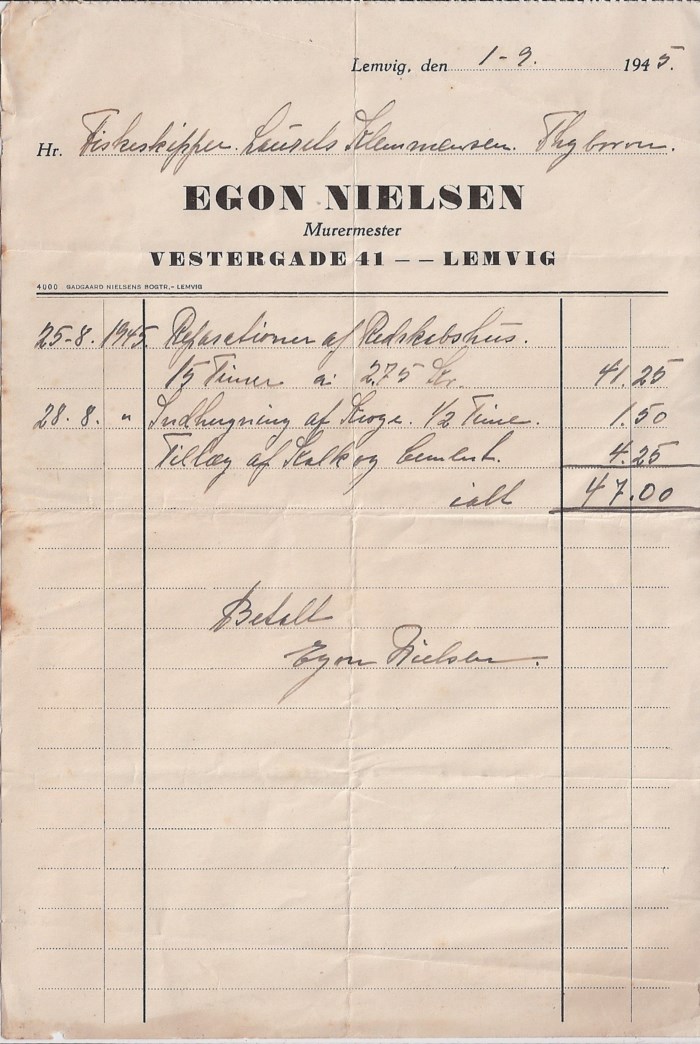 Lemvig, den 1-9. 1945.
Hr. Fiskeskipper. Laurits Klemmensen. Thyborøn.
EGON NIELSEN
Murermester
VESTERGADE 41 – – LEMVIG
4000 GADGAARD NIELSENS BOGTR,- LEMVIG
25-8. 1945. Reparationer af Redskabshus.
15 Timer a: 2.75 Kr. 41.25
28. 8. " Indhugning af Kroge. 1/2 Time. 1.50
Tillæg af Kalk og Cement. 4.25
ialt 47.00
Betalt
Egon Nielsen.